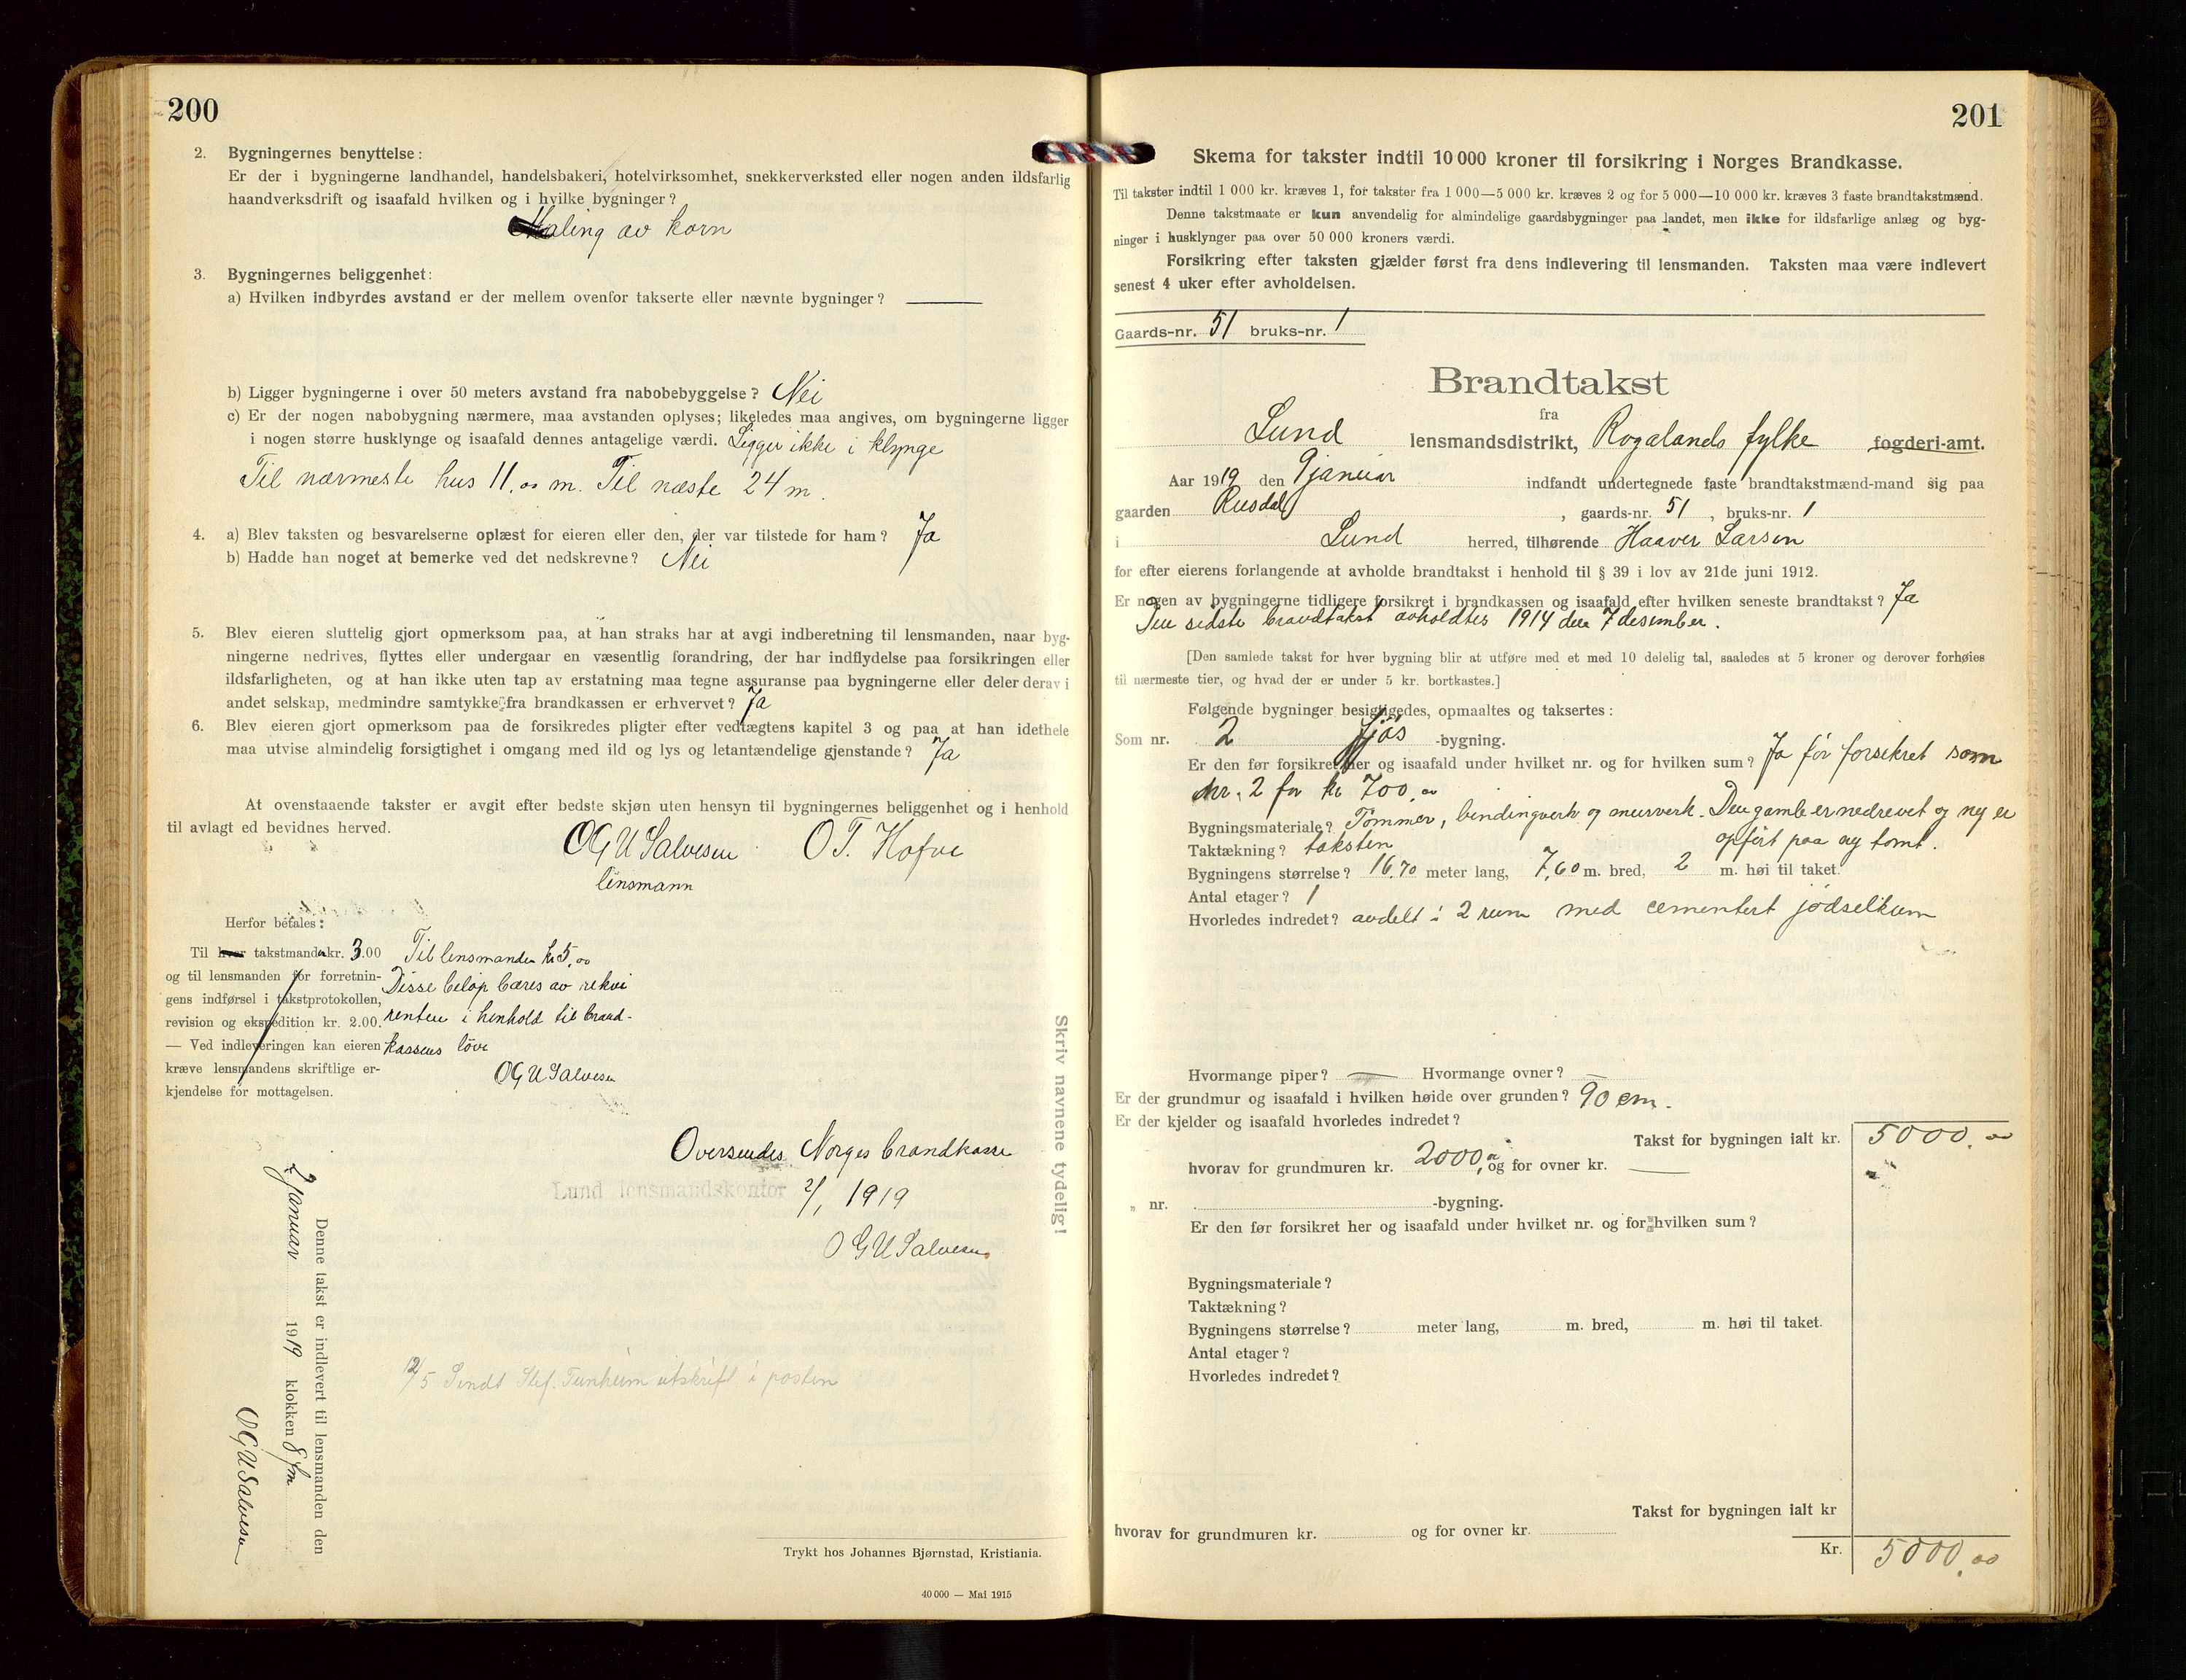 200
2. Bygningernes benyttelse:
Er der i bygningerne landhandel, handelsbakeri, hotelvirksomhet, snekkerverksted eller nogen anden ildsfarlig
haandverksdrift og isaafald hvilken og i hvilke bygninger?
Maling av korn
3. Bygningernes beliggenhet:
a) Hvilken indbyrdes avstand er der mellem ovenfor takserte eller nævnte bygninger?
b) Ligger bygningerne i over 50 meters avstand fra nabobebyggelse? Nei
c) Er der nogen nabobygning nærmere, maa avstanden oplyses; likeledes maa angives, om bygningerne ligger
i nogen større husklynge og isaafald dennes antagelige værdi. Ligger ikke i klynge
Til nærmeste hus 11,00 m. Til næste 24 m.
4. a) Blev taksten og besvarelserne oplæst for eieren eller den, der var tilstede for ham? Ja
b) Hadde han noget at bemerke ved det nedskrevne? Nei
5. Blev eieren sluttelig gjort opmerksom paa, at han straks har at avgi indberetning til lensmanden, naar byg-
ningerne nedrives, flyttes eller undergaar en væsentlig forandring, der har indflydelse paa forsikringen eller
ildsfarligheten, og at han ikke uten tap av erstatning maa tegne assuranse paa bygningerne eller deler derav i
andet selskap, medmindre samtykke fra brandkassen er erhvervet? Ja
6. Blev eieren gjort opmerksom paa de forsikredes pligter efter vedtægtens kapitel 3 og paa at han idethele
maa utvise almindelig forsigtighet i omgang med ild og lys og letantændelige gjenstande? Ja
At ovenstaaende takster er avgit efter bedste skjøn uten hensyn til bygningernes beliggenhet og i henhold
til avlagt ed bevidnes herved.
OGU Salvesen O T. Hofve
lensmann
Herfor betales:
Til hver takstmand kr. 3.00 Til lensmanden kr 5,00
og til lensmanden for forretnin- Disse beløp bæres av rekvi
gens indførsel i takstprotokollen,
revision og ekspedition kr. 2.00. renten i henhold til brand-
— Ved indleveringen kan eieren kassens love
kræve lensmandens skriftlige er- OGU Salvesen
kjendelse for mottagelsen.
Oversendes Norges brandkasse
Lund lensmandskontor 2/1 1919
OGU Salvesen
Denne takst er indlevert til lensmanden den
2 januar 1919 klokken 8 fm
OGU Salvesen
12/5 Sendt Stef. Tunheim utskrift i posten
Skriv navnene tydelig!
Trykt hos Johannes Bjørnstad, Kristiania.
40 000 — Mai 1915
201
Skema for takster indtil 10 000 kroner til forsikring i Norges Brandkasse.
Til takster indtil 1 000 kr. kræves 1, for takster fra 1 000—5 000 kr. kræves 2 og for 5 000—10 000 kr. kræves 3 faste brandtakstmænd.
Denne takstmaate er kun anvendelig for almindelige gaardsbygninger paa landet, men ikke for ildsfarlige anlæg og byg-
ninger i husklynger paa over 50 000 kroners værdi.
Forsikring efter taksten gjælder først fra dens indlevering til lensmanden. Taksten maa være indlevert
senest 4 uker efter avholdelsen.
Gaards-nr. 51 bruks-nr. 1
Brandtakst
fra
Lund lensmandsdistrikt, Rogalands fylke fogderi-amt.
Aar 1919 den 9 januar indfandt undertegnede faste brandtakstmænd-mand sig paa
gaarden Rusdal, gaards-nr. 51, bruks-nr. 1
i Lund herred, tilhørende Haaver Larsen
for efter eierens forlangende at avholde brandtakst i henhold til § 39 i lov av 21de juni 1912.
Er nogen av bygningerne tidligere forsikret i brandkassen og isaafald efter hvilken seneste brandtakst? Ja
Den sidste brandtakst avholdtes 1914 den 7 desember.
[Den samlede takst for hver bygning blir at utføre med et med 10 delelig tal, saaledes at 5 kroner og derover forhøies
til nærmeste tier, og hvad der er under 5 kr. bortkastes.]
Følgende bygninger besigtigedes, opmaaltes og taksertes:
Som nr. 2 Fjøs -bygning.
Er den før forsikret her og isaafald under hvilket nr. og for hvilken sum? Ja før forsikret som
Nr. 2 for kr 700,00
Bygningsmateriale? Tømmer, bindingverk og murverk. Den gamle er nedrevet og ny er
Taktækning? taksten opført paa ny tomt.
Bygningens størrelse? 16,70 meter lang, 7,60 m. bred, 2 m. høi til taket.
Antal etager? 1
Hvorledes indredet? avdelt i 2 rum med cementert jødselkum
Hvormange piper? — Hvormange ovner? —
Er der grundmur og isaafald i hvilken høide over grunden? 90 cm.
Er der kjelder og isaafald hvorledes indredet?
Takst for bygningen ialt kr. 5000,00
hvorav for grundmuren kr. 2000,00 og for ovner kr. —
„ nr. -bygning.
Er den før forsikret her og isaafald under hvilket nr. og for hvilken sum?
Bygningsmateriale?
Taktækning?
Bygningens størrelse? meter lang, m. bred, m. høi til taket.
Antal etager?
Hvorledes indredet?
Takst for bygningen ialt kr
hvorav for grundmuren kr. og for ovner kr.
Kr. 5000,00